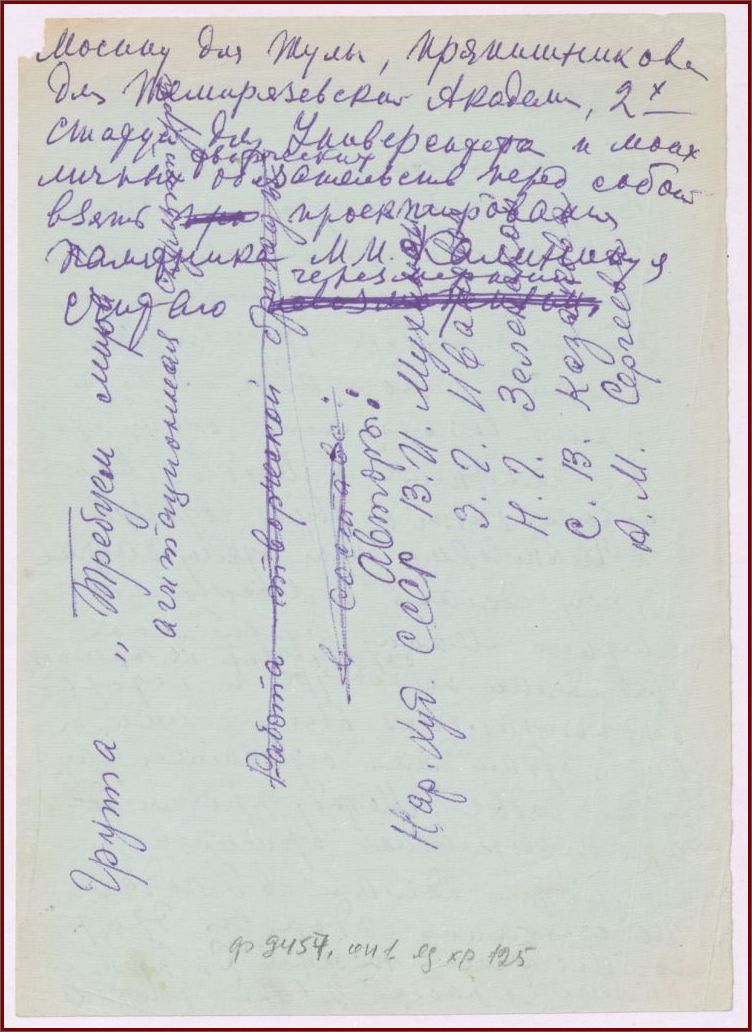 Мосину для Тулы, Прянишникова
для Тимирязевской Академии, 2х
статуй для Университета и моих
творческих
личных обязательств перед собой
взять про проектирования
памятника М.И. Калинину я
считаю
Группа „Требуем мира"
агитационная скульптура
Работа творческой бригады
в составе:
Авторы:
Нар. Худ. СССР В. И. Мухина
З. Г. Иванова
Н. Г. Зеленская
С. В. Казаков
А. М. Сергеев
ф 2457, оп 1. ед хр 125